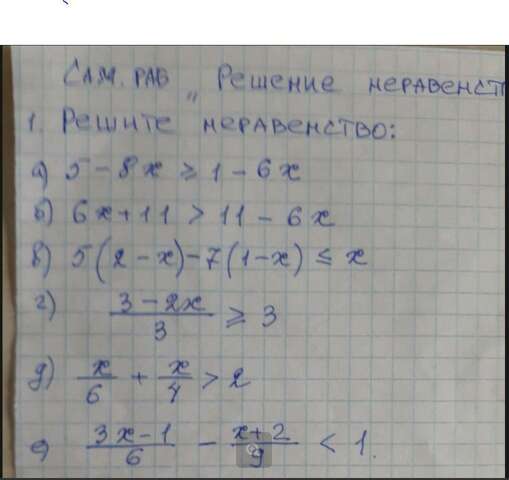 Сам. раб „Решение неравенст
1. Решите неравенство:
а) 5 - 8x ≥ 1 - 6x
б) 6x + 11 > 11 - 6x
в) 5(2 - x) - 7(1 - x) ≤ x
г) (3 - 2x)/3 ≥ 3
д) x/6 + x/4 > 2
е) (3x - 1)/6 - (x + 2)/9 < 1.